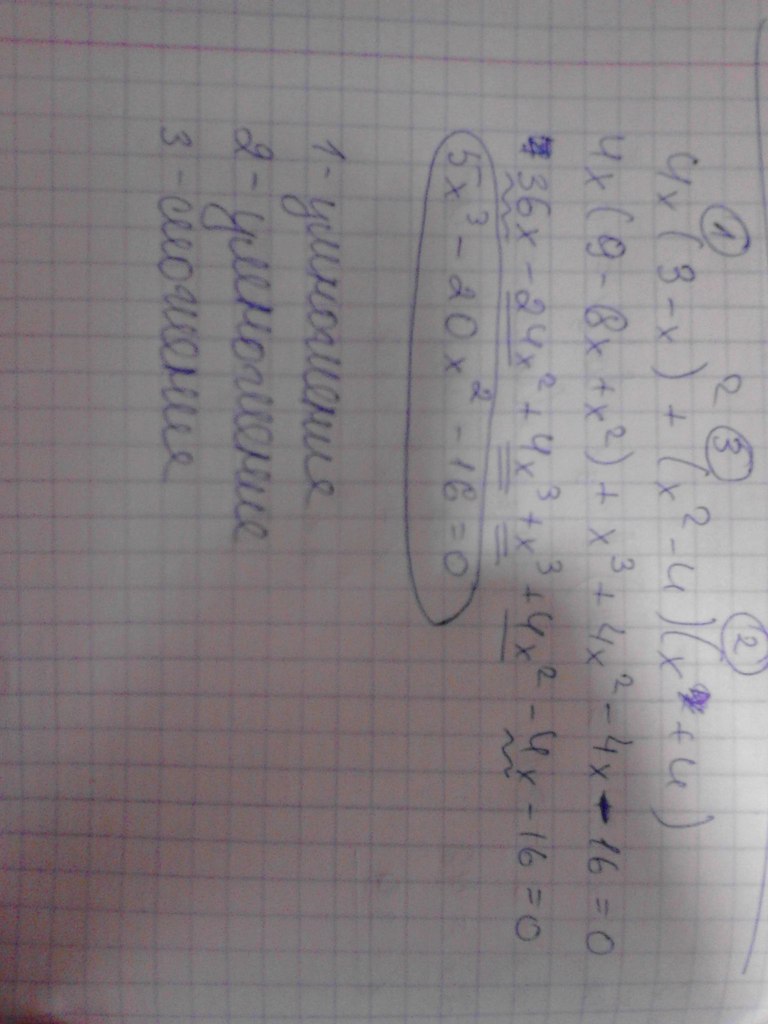 ① ③ ②
4x(3-x)² + (x²-4)(x+4)
4x(9-6x+x²)+x³+4x²-4x-16=0
36x-24x²+4x³+x³+4x²-4x-16=0
5x³-20x²-16=0
1-умножения
2-умножение
3-сложения